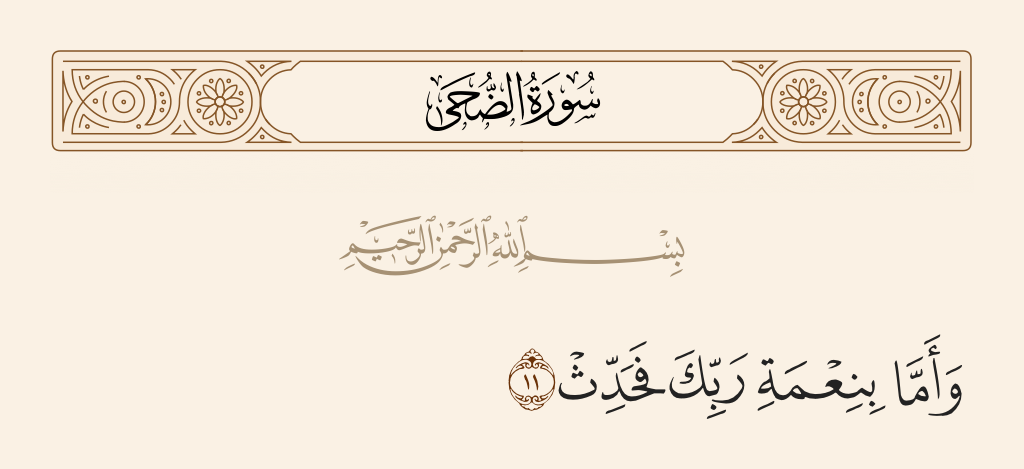 سُورَةُ الضُّحَى
بِسْمِ ٱللَّهِ ٱلرَّحْمَٰنِ ٱلرَّحِيمِ
وَأَمَّا بِنِعْمَةِ رَبِّكَ فَحَدِّثْ ١١